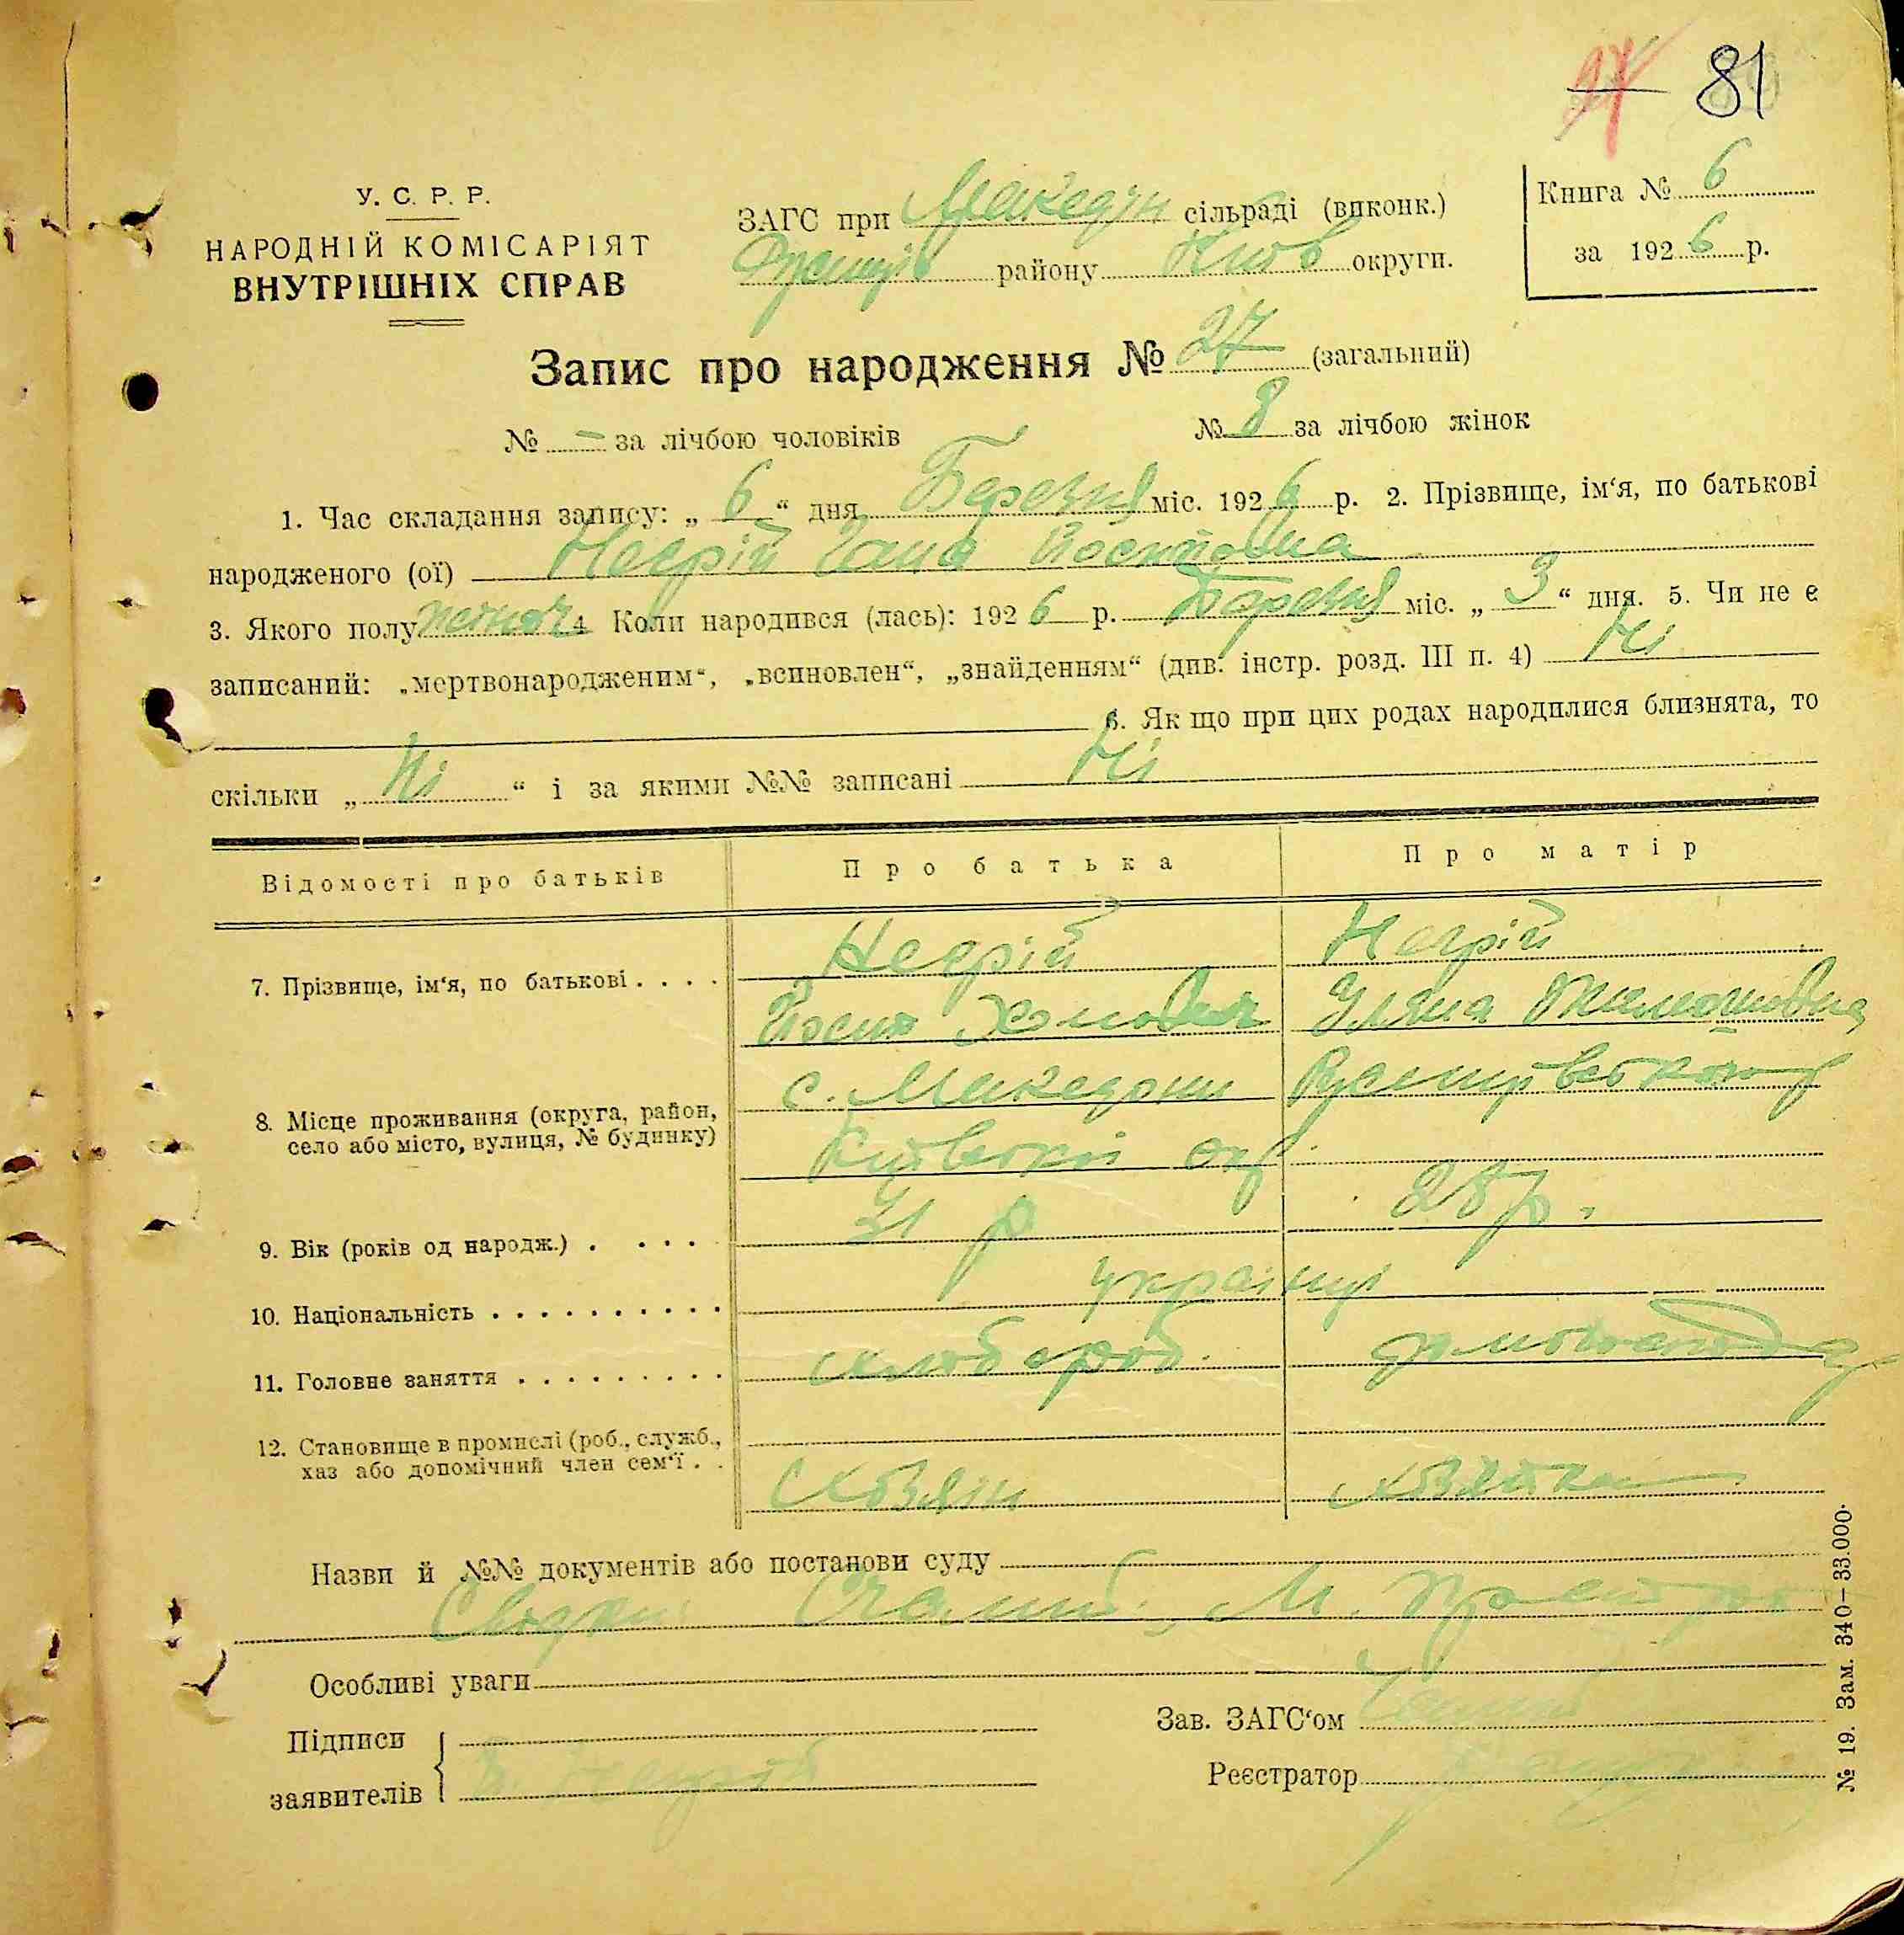 81
У. С. Р. Р.
НАРОДНІЙ КОМІСАРІЯТ
ВНУТРІШНІХ СПРАВ
ЗАГС при Македон сільраді (виконк.)
району Київ округи.
Книга № 6
за 1926 р.
Запис про народження № 27 (загальний)
№ – за лічбою чоловіків № 8 за лічбою жінок
1. Час складання запису: „ 6 “ дня Березня міс. 1926 р. 2. Прізвище, ім‘я, по батькові
народженого (ої) Негрій Ганна Йосиповна
3. Якого полу жіноч 4 Коли народився (лась): 1926 р. Березня міс. „ 3 “ дня. 5. Чи не є
записаний: „мертвонародженим“, „всиновлен“, „знайденням“ (див. інстр. розд. III п. 4) Ні
6. Як що при цих родах народилися близнята, то
скільки „ Ні “ і за якими №№ записані Ні
Відомості про батьків Про батька Про матір
7. Прізвище, ім‘я, по батькові . . . . Негрій Негрій
Йосип Хомович Уляна
8. Місце проживання (округа, район, село або місто, вулиця, № будинку) с. Македони
Київської окр
9. Вік (років од народж.) . . . . 31 р 28 р.
10. Національність . . . . . . . . . . українці
11. Головне заняття . . . . . . . . . хлібороб.
12. Становище в промислі (роб., служб., хаз або допомічний член сем‘ї . .
Хозяїн хозяйка
Назви й №№ документів або постанови суду
Особливі уваги
Підписи
заявителів
Зав. ЗАГС‘ом
Реєстратор
№ 19. Зам. 340–33.000.